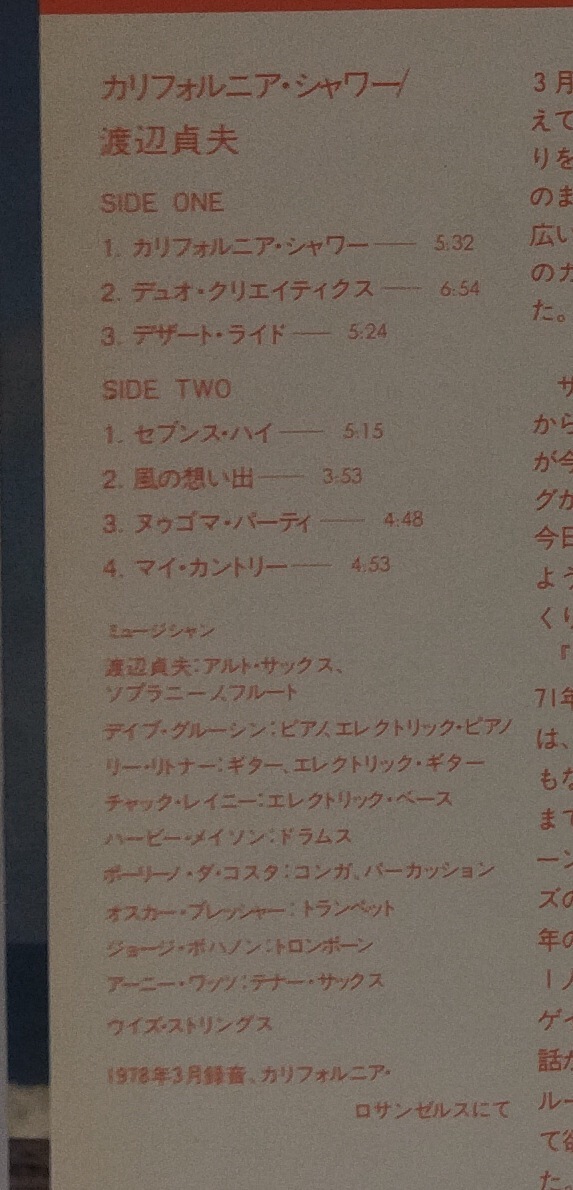 カリフォルニア・シャワー/
渡辺貞夫
SIDE ONE
1. カリフォルニア・シャワー — 5:32
2. デュオ・クリエイティクス — 6:54
3. デザート・ライド — 5:24
SIDE TWO
1. セブンス・ハイ — 5:15
2. 風の想い出 — 3:53
3. ヌゥゴマ・パーティ — 4:48
4. マイ・カントリー — 4:53
ミュージシャン
渡辺貞夫:アルト・サックス、
ソプラニーノ、フルート
デイブ・グルーシン:ピアノ、エレクトリック・ピアノ
リー・リトナー:ギター、エレクトリック・ギター
チャック・レイニー:エレクトリック・ベース
ハービー・メイソン:ドラムス
ポーリーノ・ダ・コスタ:コンガ、パーカッション
オスカー・ブレッシャー:トランペット
ジョージ・ボハノン:トロンボーン
アーニー・ワッツ:テナー・サックス
ウイズ・ストリングス
1978年3月録音、カリフォルニア・
ロサンゼルスにて
3月
えて
りを
のま
広い
のカ
た。
サ
から
が今
グが
今日
よう
くり
『
71年
は、
もな
まで
ーン
ズの
年の
1人
ゲイ
話か
ルー
て欲
た。